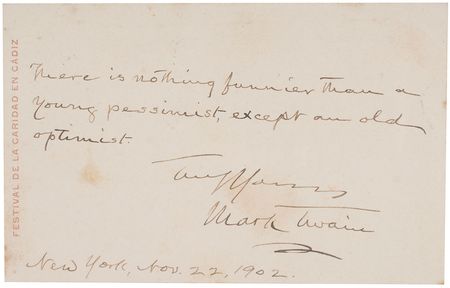 FESTIVAL DE LA CARIDAD EN CÁDIZ
There is nothing funnier than a
young pessimist, except an old
optimist.
Truly Yours
Mark Twain
New York, Nov. 22, 1902.